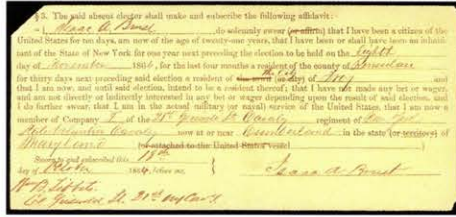 § 3. The said absent elector shall make and subscribe the following affidavit:
I, Isaac A. Brust do solemnly swear (or affirm) that I have been a citizen of the
United States for ten days, am now of the age of twenty-one years, that I have been or shall have been an inhabi-
tant of the State of New York for one year next preceding the election to be held on the eighth
day of November 1864, for the last four months a resident of the county of
for thirty days next preceding said election a resident of the city of Troy
and that I am now, and until said election, intend to be a resident thereof; that I have not made any bet or wager,
and am not directly or indirectly interested in any bet or wager depending upon the result of said election, and
I do further swear, that I am in the actual military (or naval) service of the United States, that I am now a
member of Company of the regiment of New York
Cavalry now at or near Cumberland in the state (or territory) of
Maryland (or attached to the United States vessel
Sworn to and subscribed this 18th
day of October 1864, before me, Isaac A Brust
Wm B. Tibbits
Col 21st